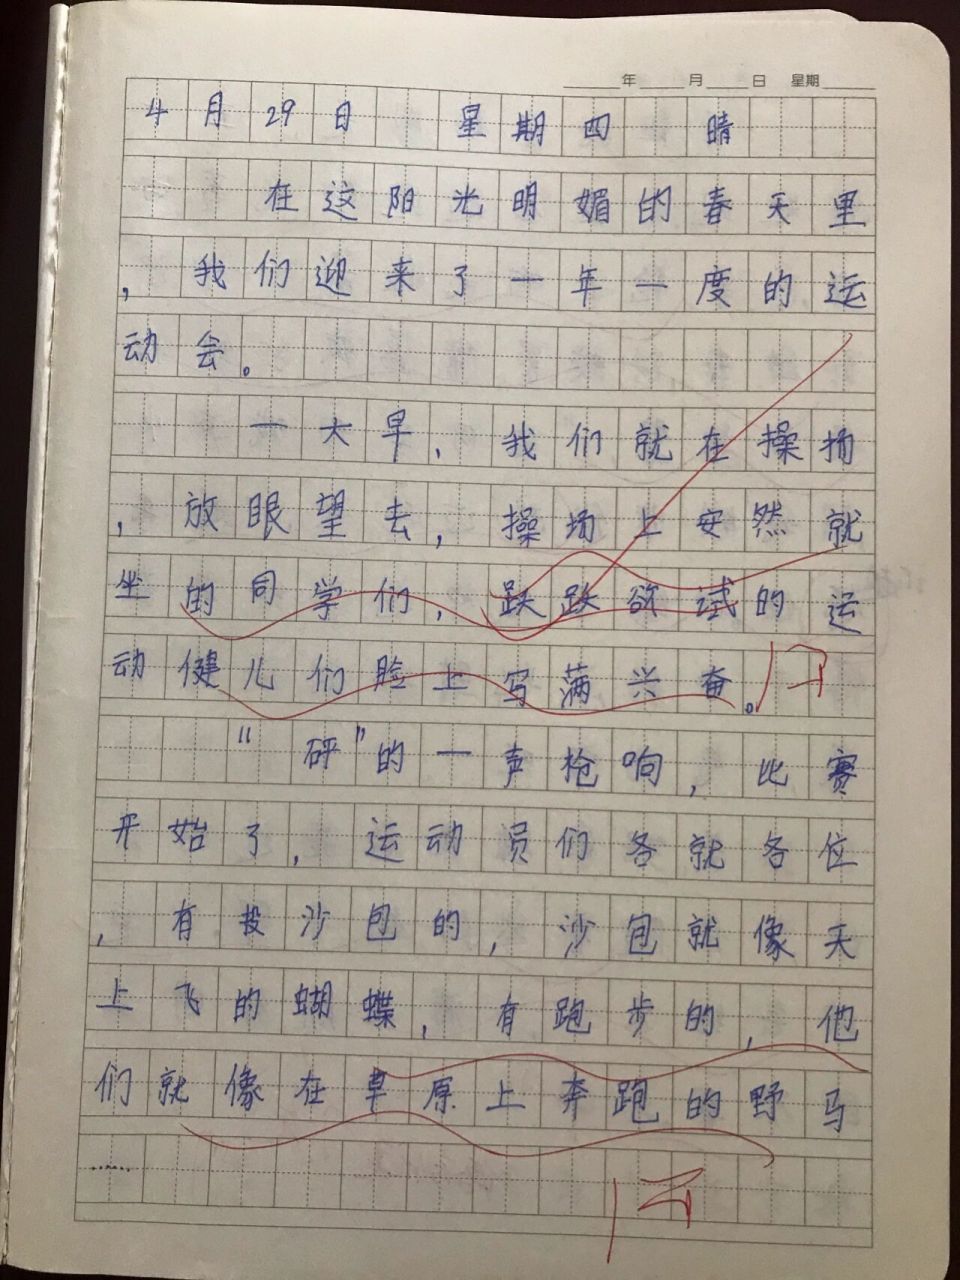 年 月 日 星期
4月29日 星期四 晴
在这阳光明媚的春天里
，我们迎来了一年一度的运
动会。
一大早，我们就在操场
，放眼望去，操场上安然就
坐的同学们，跃跃欲试的运
动健儿们脸上写满兴奋。
“砰”的一声枪响，比赛
开始了，运动员们各就各位
，有投沙包的，沙包就像天
上飞的蝴蝶，有跑步的，他
们就像在草原上奔跑的野马
……